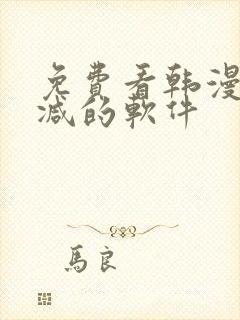 免費看韩漫
减的軟件
馬良